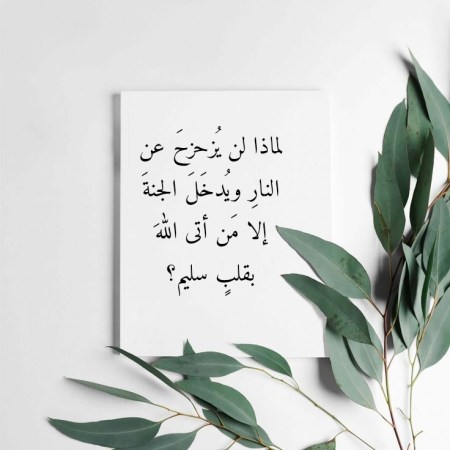 لماذا لن يُزحزحَ عن
النارِ ويُدخَلَ الجنةَ
إلا مَن أتى اللهَ
بقلبٍ سليم؟